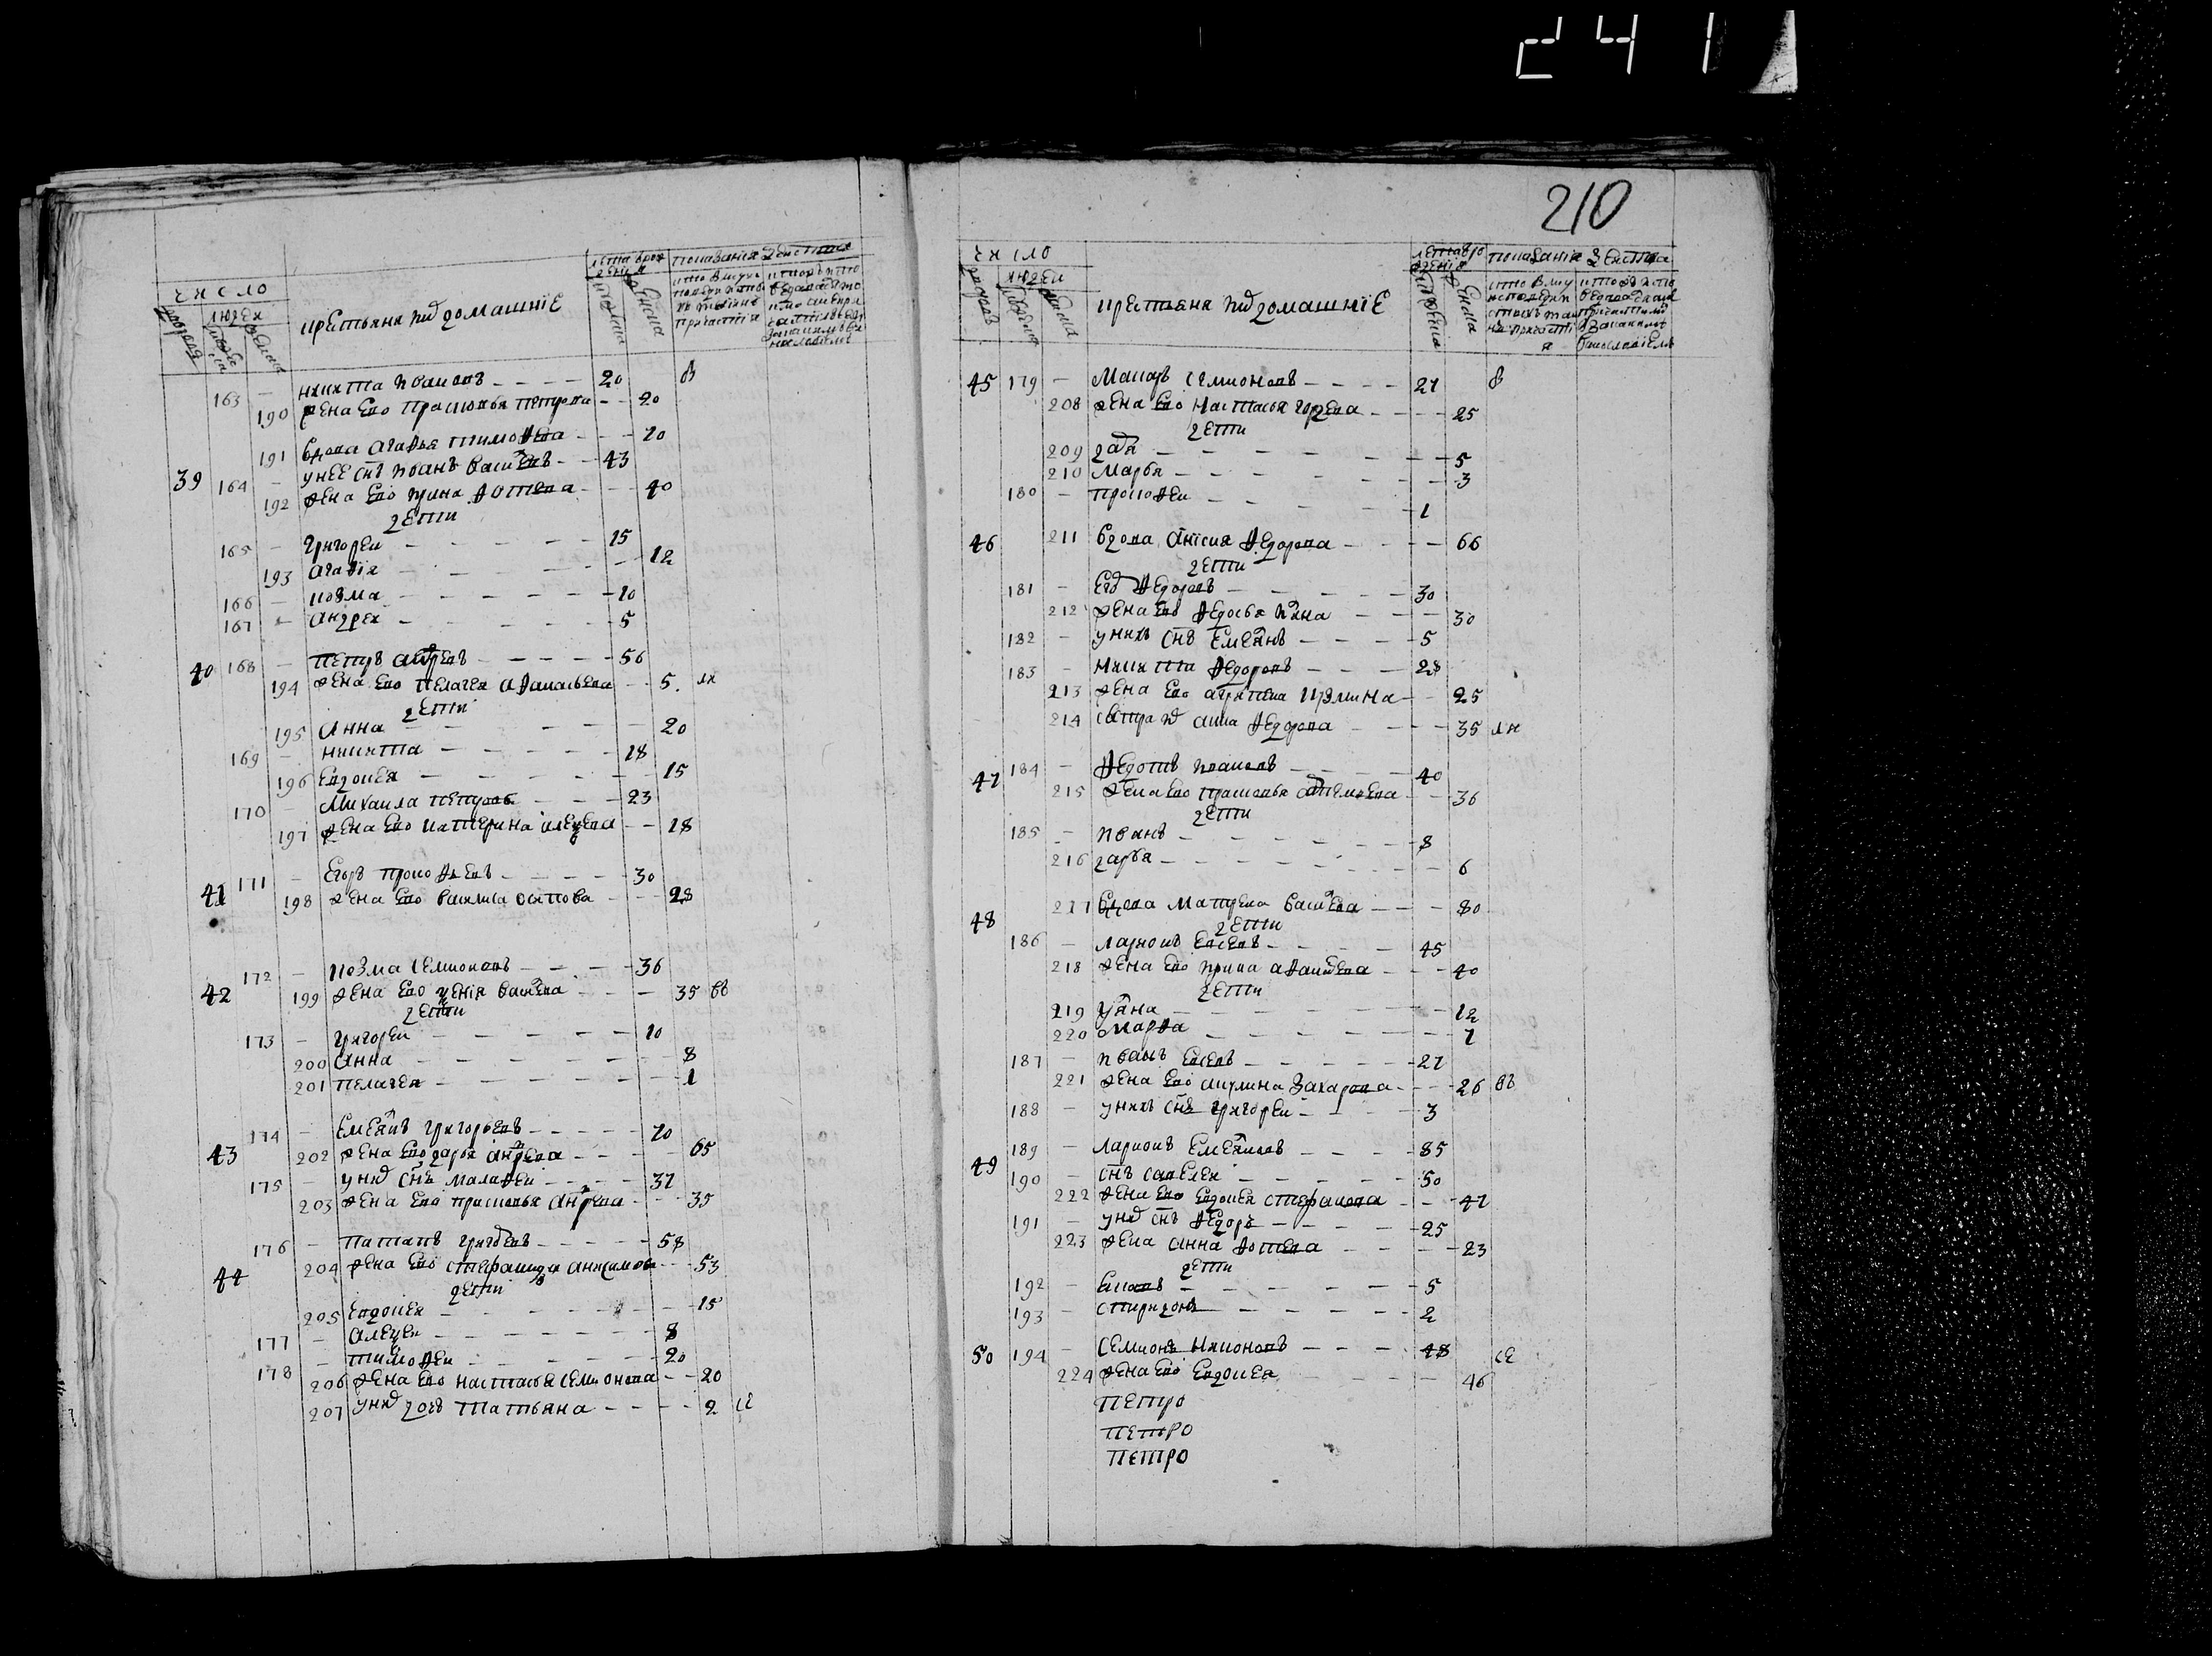 241
число
людеи
дворовъ
мужеска
женска
крестьяня ихъ домашнiе
лета врождения
мужеска
женска
показания действа
163 - никита иванов - - - - 20 в
190 жена ево прасковья петрова - - 20
191 вдова агафья тимофева - - - 70
39 164 - унее снъ иванъ василевъ - - 43
192 жена ево ирина фотиева - - - 40
дети
165 - григореи - - - - - 15
193 агафiя - - - - - 12
166 - козма - - - - - 10
167 - андреи - - - - - 5
40 168 - петръ андревъ - - - - - 56
194 жена ево пелагея афанасьева - - 5. ля
дети
195 анна - - - - - 20
169 - никита - - - - - 18
196 евдокея - - - - - 15
170 - михаила петровъ - - - 23
197 жена ево катерина алексева - - 18
41 171 - егоръ прокофьевъ - - - - - 30
198 жена ево василиса осипова - - - 28
42 172 - козма семионовъ - - - - 36
199 жена ево ксенiя василева - - - 35 вв
дети
173 - григореи - - - - - 10
200 анна - - - - - 8
201 пелагея - - - - - 1
43 174 - емелянъ григорьевъ - - - - - 70
202 жена ево дарья андрева - - - - 65
175 - унихъ снъ малафеи - - - - 37
203 жена ево прасковья андрева - - - 35
44 176 - потапъ григоревъ - - - - - 58
204 жена ево стефанида анисимова - - - 53
дети
205 евдокея - - - - - 15
177 - алексеи - - - - - 8
178 - тимофеи - - - - - 20
206 жена ево настасья семионова - - 20
207 унихъ дочь татьяна - - - - 2 се
210
число
людеи
дворовъ
мужеска
женска
крестьяня ихъ домашнiе
лета врождения
мужеска
женска
показанiя действа
45 179 - макаръ семионовъ - - - - 27 в
208 жена ево настасья гордева - - - - 25
дети
209 дарья - - - - - 5
210 марья - - - - - 3
180 - прокофеи - - - - - 1
46 211 вдова анисия федорова - - - - 66
дети
181 - егоръ федоровъ - - - - - 30
212 жена ево федосья ивана - - - 30
182 - унихъ снъ емелянъ - - - - 5
183 - никита федоровъ - - - 28
213 жена ево агрипена кузмина - - 25
214 сестра ихъ анна федорова - - - 35 ля
47 184 - федотъ ивановъ - - - - 40
215 жена ево прасковья артемьева - - - 36
дети
185 - иванъ - - - - - 8
216 дарья - - - - - 6
48 217 вдова матрена василева - - - - 80
дети
186 - ларионъ евсевъ - - - - - 45
218 жена ево ирина афанасева - - - 40
дети
219 уляна - - - - - 12
220 марфа - - - - - 7
187 - иванъ евсевъ - - - - - 27
221 жена ево акулина захарова - - - 26 вв
188 - унихъ снъ григореи - - - - 3
49 189 - ларионъ емеляновъ - - - - 85
190 - снъ савелеи - - - - - 50
222 жена ево евдокея стефанова - - - 47
191 - унихъ снъ федоръ - - - - 25
223 жена анна фотиева - - - - 23
дети
192 - - - - - - 5
193 - спиридонъ - - - - - 2
50 194 - семионъ никоновъ - - - - 48 се
224 жена ево евдокея - - - - 46
петро
петро
петро